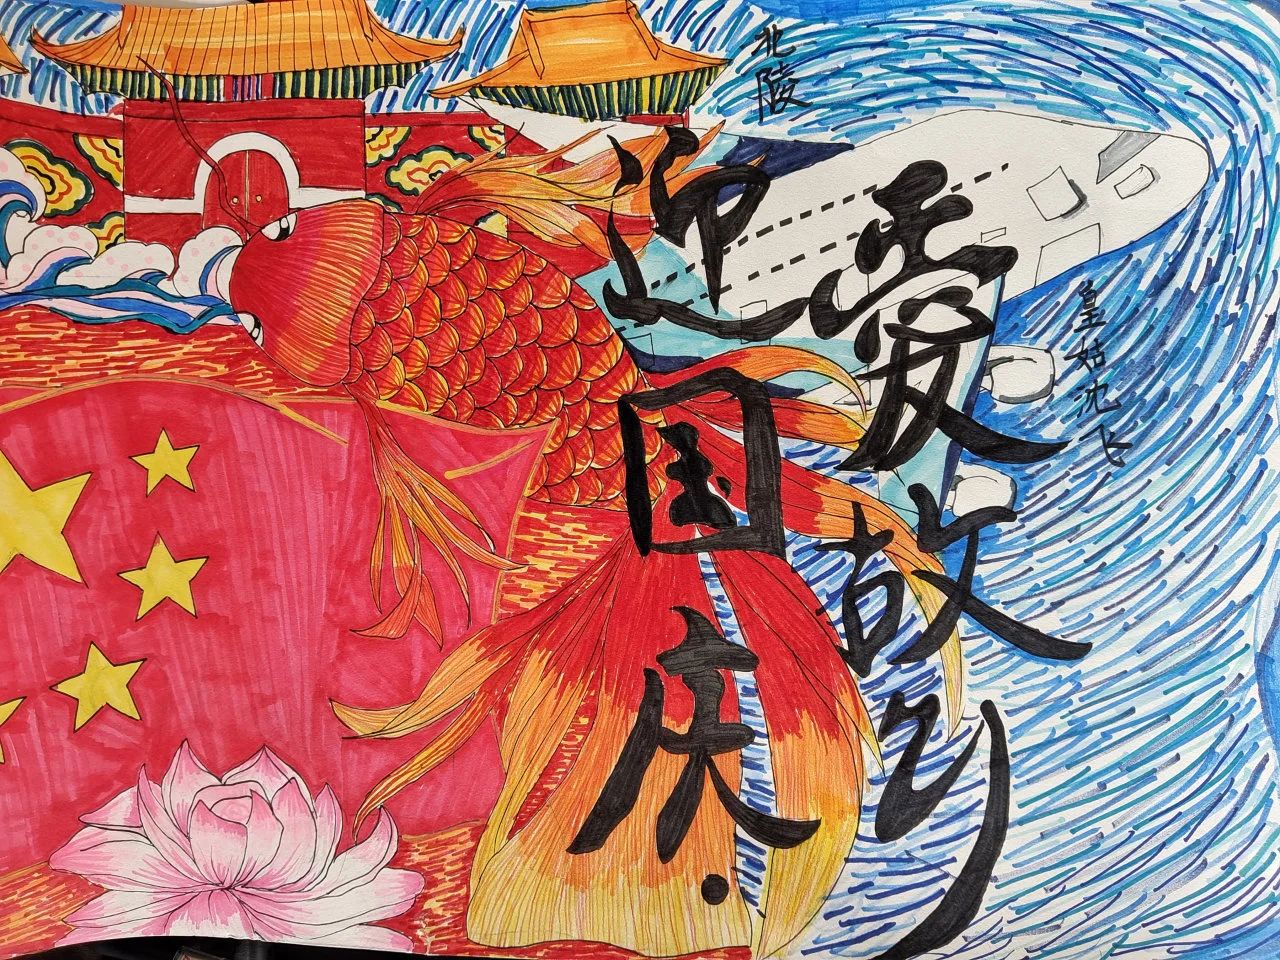 北陵
爱故乡
迎国庆
皇姑沈飞